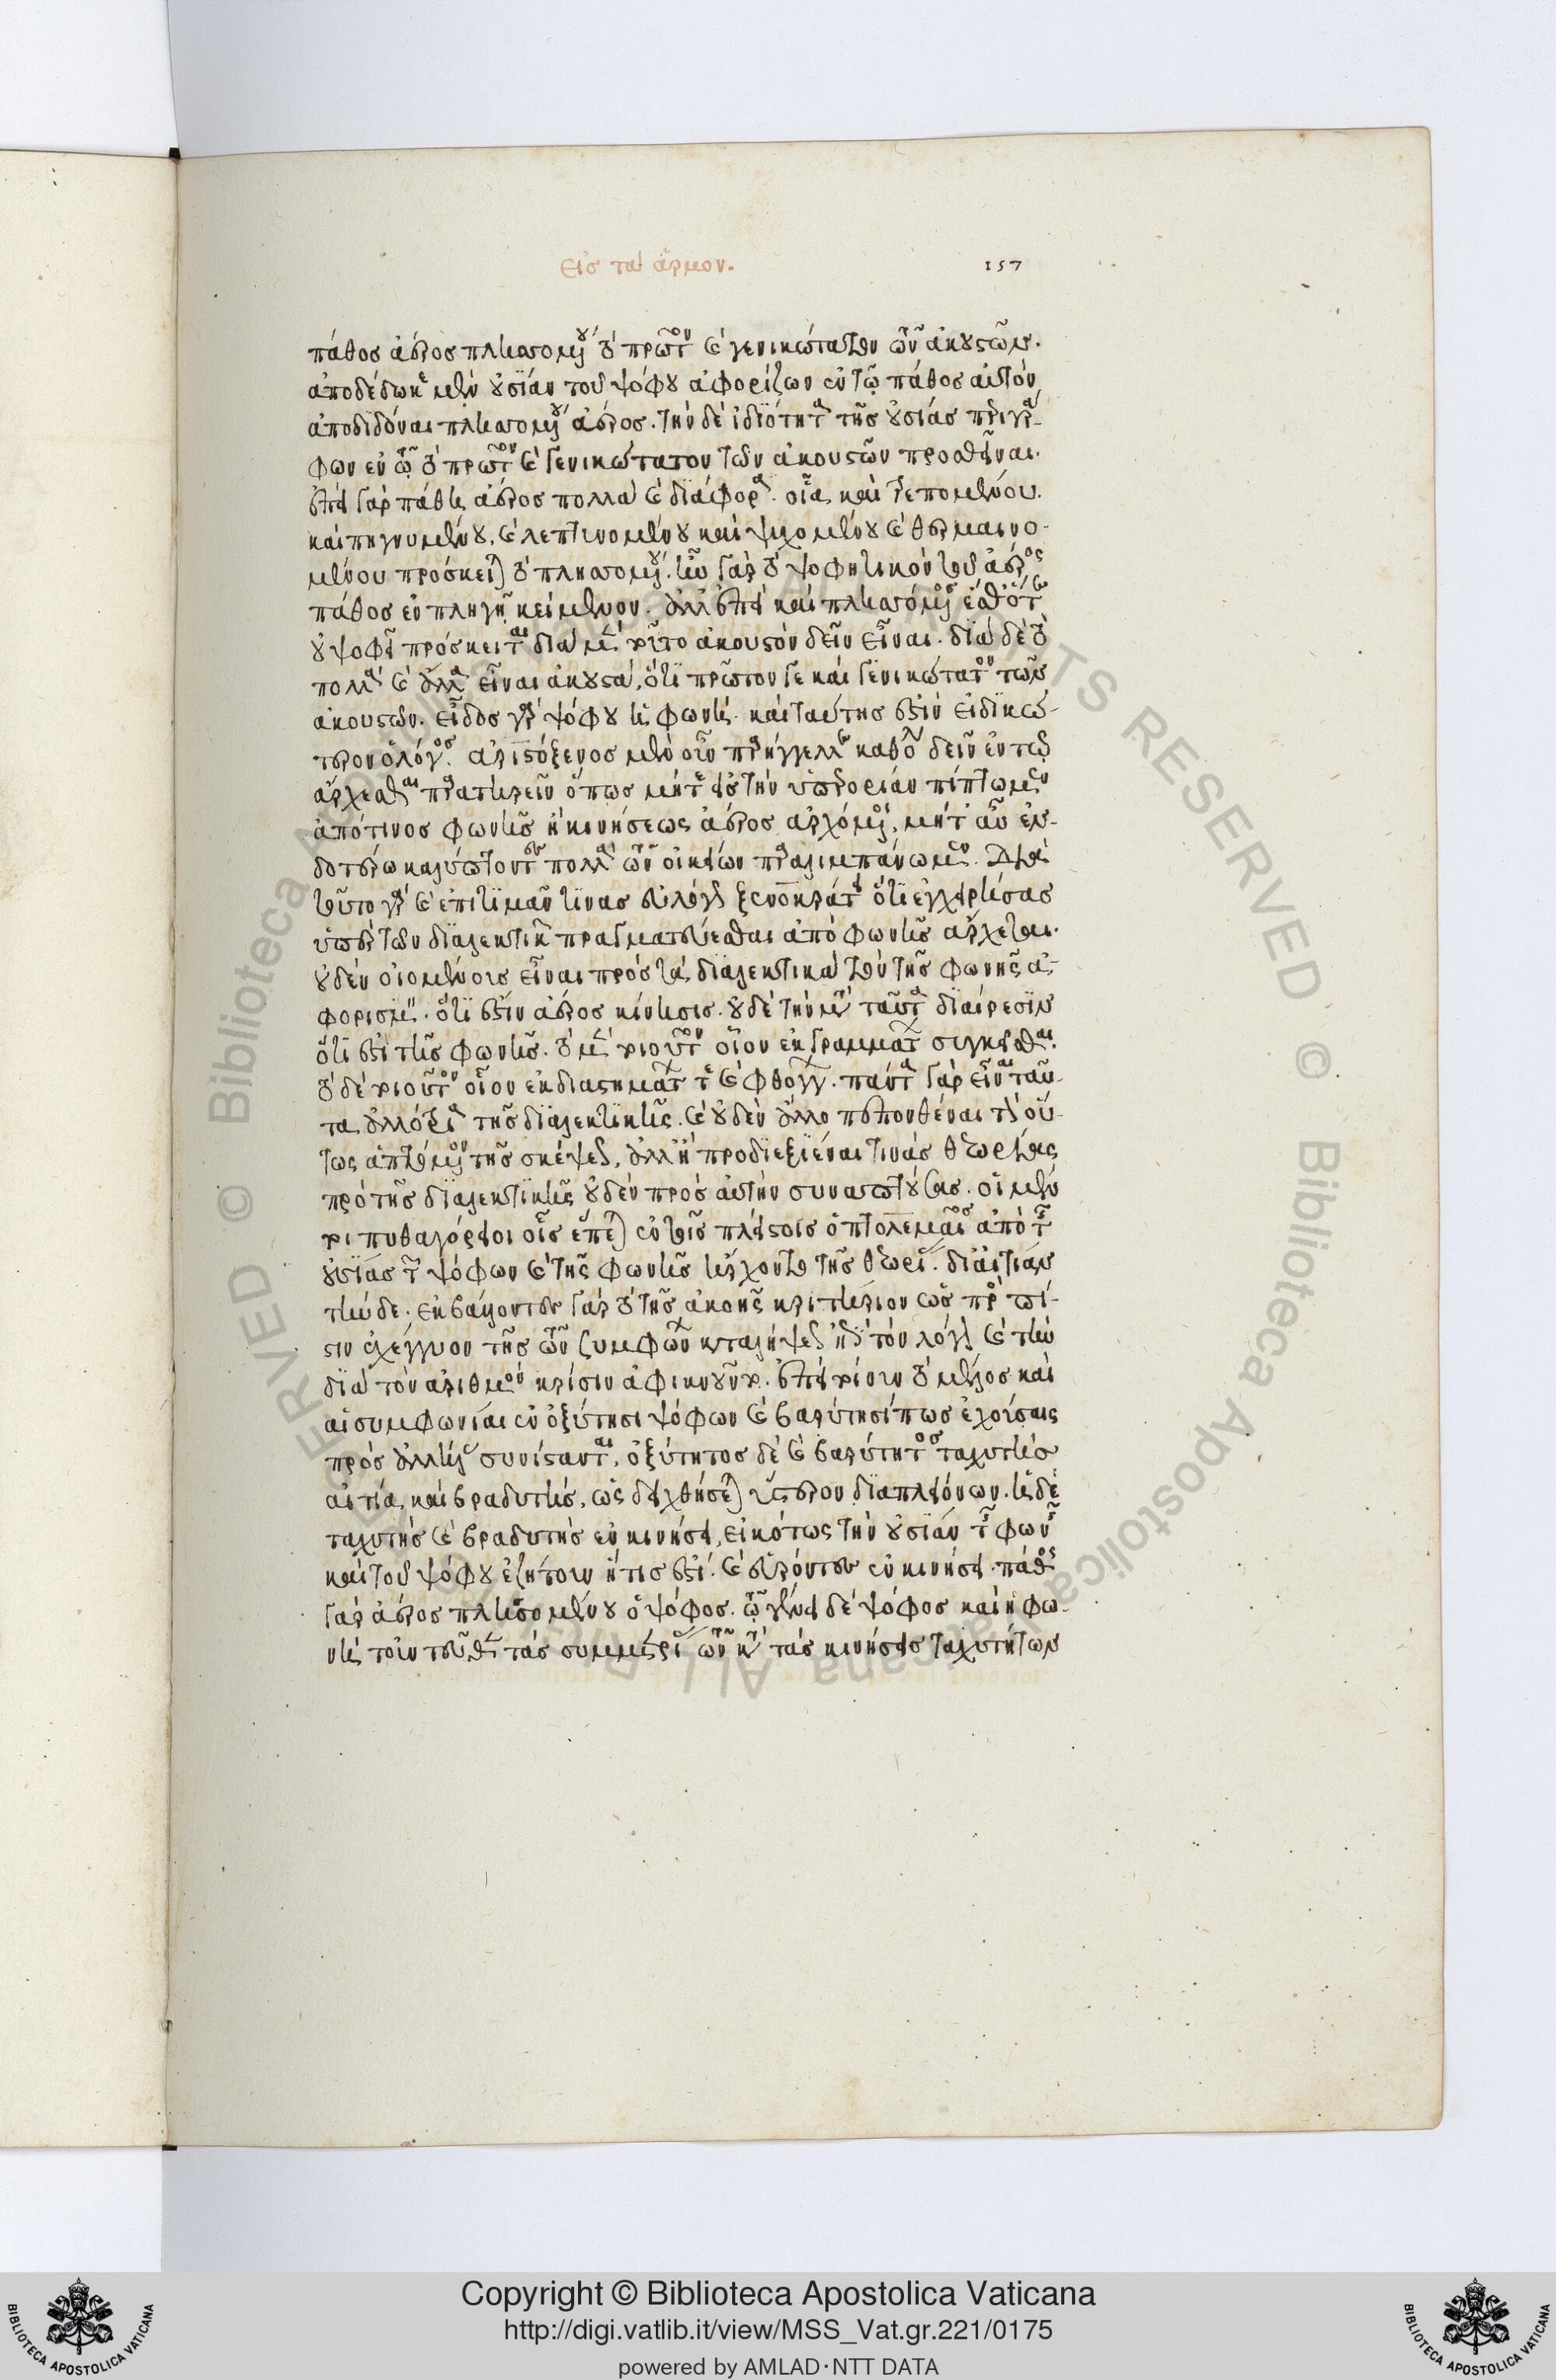 εἰς τὰ ἁρμον.
157
πάθος ἀέρος πλησσομένου τὸ πρῶτον καὶ γενικώτατον τῶν ἀκουστῶν.
ἀποδέδωκε μὲν οὐσίαν τοῦ ψόφου ἀφορίζων ἐν τῷ πάθος αὐτὸν
ἀποδιδόναι πλησσομένου ἀέρος. τὴν δὲ ἰδιότητα τῆς οὐσίας περιγρά-
φων ἐν ᾧ τὸ πρῶτον καὶ γενικώτατον τῶν ἀκουστῶν προσθεῖναι.
ἐπεὶ γὰρ πάθη ἀέρος πολλὰ καὶ διάφορα. οἷα καὶ τρεπομένου.
καὶ πηγνυμένου, καὶ λεπτυνομένου καὶ ψυχομένου καὶ θερμαινο-
μένου πρόσκειται τὸ πλησσομένου. ἦν γὰρ τὸ ψοφητικὸν τοῦ ἀέρος
πάθος ἐν πληγῇ κείμενον. ἀλλ' ἐπεὶ καὶ πλησσόμενος
οὐ ψοφεῖ πρόσκειται διὰ μὲν τοῦτο ἀκουστὸν δεῖν εἶναι. διὰ δὲ τὸ
πολλὰ καὶ ἄλλα εἶναι ἀκουστά, ὅτι πρῶτον γε καὶ γενικώτατον τῶν
ἀκουστῶν. εἶδος γὰρ ψόφου ἡ φωνή. καὶ ταύτης ἐστὶν εἰδικώ-
τερον ὁ λόγος. ἀριστόξενος μὲν οὖν παρήγγελλε καθόλου δεῖν ἐν τῷ
ἄρχεσθαι παρατηρεῖν ὅπως μήτε εἰς τὴν ὑπερορίαν πίπτωμεν
ἀπό τινος φωνῆς ἢ κινήσεως ἀέρος ἀρχόμενοι, μήτ' αὖ ἐν-
δοτέρω καμπτοντες πολλὰ τῶν οἰκείων παραλιμπάνωμεν. διὰ
τοῦτο γὰρ καὶ ἐπιτιμᾶν τινας εὐλόγως ξενοκράτει ὅτι ἐγχειρήσας
ὑπὲρ τῶν διαλεκτικῶν πραγματεύεσθαι ἀπὸ φωνῆς ἄρχεται.
οὐδὲν οἰομένοις εἶναι πρὸς τὰ διαλεκτικὰ τὸν τῆς φωνῆς ἀ-
φορισμόν. ὅτι ἐστὶν ἀέρος κίνησις. οὐδὲ τὴν μετὰ ταῦτα διαίρεσιν
ὅτι ἐστὶ τῆς φωνῆς. τὸ μὲν τοιοῦτον οἷον ἐκ γραμμάτων συγκεῖσθαι.
τὸ δὲ τοιοῦτον οἷον ἐκ διαστημάτων τε καὶ φθόγγων. πάντα γὰρ εἶναι ταῦ-
τα ἀλλότρια τῆς διαλεκτικῆς. καὶ οὐδὲν ἄλλο πεπονθέναι τὸν οὕ-
τως ἁπτόμενον τῆς σκέψεως, ἀλλ' ἢ προδιεξιέναι τινὰς θεωρίας
πρὸ τῆς διαλεκτικῆς οὐδὲν πρὸς αὐτὴν συναπτούσας. οἱ μέν
τοι πυθαγόρειοι οἷς ἕπεται ἐν τοῖς πλείστοις ὁ πτολεμαῖος ἀπὸ τῆς
οὐσίας τῶν ψόφων καὶ τῆς φωνῆς ἤρχοντο τῆς θεωρίας. δι' αἰτίαν
τήνδε. ἐκβαλόντες γὰρ τὸ τῆς ἀκοῆς κριτήριον ὡς πρὸς πί-
στιν ἐχέγγυον τῆς τῶν συμφωνιῶν καταλήψεως ἐπὶ τὸν λόγον καὶ τὴν
διὰ τὸν ἀριθμὸν κρίσιν ἀφικνοῦντο. ἐπεὶ τοίνυν τὸ μέλος καὶ
αἱ συμφωνίαι ἐν ὀξύτησι ψόφων καὶ βαρύτησί πως ἐχούσαις
πρὸς ἀλλήλας συνίσταντο, ὀξύτητος δὲ καὶ βαρύτητος ταχυτὴς
αἰτία καὶ βραδυτής, ὡς δειχθήσεται ὕστερον διὰ πλειόνων. ἡ δὲ
ταχυτὴς καὶ βραδυτὴς ἐν κινήσει, εἰκότως τὴν οὐσίαν τῆς φωνῆς
καὶ τοῦ ψόφου ἐζήτουν ἥτις ἐστί. καὶ εὑρόντες ἐν κινήσει. πάθος
γὰρ ἀέρος πλησσομένου ὁ ψόφος. ᾧ γένει δὲ ψόφος καὶ ἡ φω-
νή, τοὐντεῦθεν τὰς συμμετρίας τῶν κατὰ τὰς κινήσεις ταχυτήτων
Copyright © Biblioteca Apostolica Vaticana
http://digi.vatlib.it/view/MSS_Vat.gr.221/0175
powered by AMLAD·NTT DATA